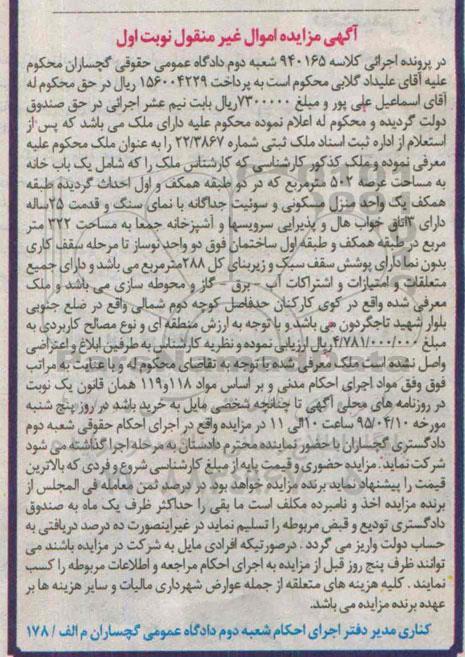 آگهی مزایده اموال غیر منقول نوبت اول
در پرونده اجرائی کلاسه ۹۴۰۱۶۵ شعبه دوم دادگاه عمومی حقوقی گچساران محکوم
علیه آقای علیداد گلابی محکوم است به پرداخت ۱۵۶۰۰۴۲۲۹ ریال در حق محکوم له
آقای اسماعیل علی پور و مبلغ ۷۳۰۰۰۰۰ریال بابت نیم عشر اجرائی در حق صندوق
دولت گردیده و محکوم له اعلام نموده محکوم علیه دارای ملک می باشد که پس از
استعلام از اداره ثبت اسناد ملک ثبتی شماره ۲۲/۳۸۶۷ را به عنوان ملک محکوم علیه
معرفی نموده و ملک کذکور کارشناسی که کارشناس ملک را که شامل یک باب خانه
به مساحت عرصه ۵۰۲ مترمربع که در دو طبقه همکف و اول احداث گردیده طبقه
همکف یک واحد منزل مسکونی و سوئیت جداگانه با نمای سنگ و قدمت ۲۵ساله
دارای ۳اتاق خواب هال و پذیرایی سرویسها و آشپزخانه جمعا به مساحت ۳۲۲ متر
مربع در طبقه همکف و طبقه اول ساختمان فوق دو واحد نوساز تا مرحله سقف کاری
بدون نما دارای پوشش سقف سبک و زیربنای کل ۲۸۸مترمربع می باشد و دارای جمیع
متعلقات و امتیازات و اشتراکات آب - برق - گاز و محوطه سازی می باشد و ملک
معرفی شده واقع در کوی کارکنان حدفاصل کوچه دوم شمالی واقع در ضلع جنوبی
بلوار شهید تاجگردون می باشد و با توجه به ارزش منطقه ای و نوع مصالح کاربردی به
مبلغ ۴/۷۸۱/۰۰۰/۰۰۰ریال ارزیابی نموده و نظریه کارشناس به طرفین ابلاغ و اعتراضی
واصل نشده است ملک معرفی شده با توجه به تقاضای محکوم له و با عنایت به مراتب
فوق وفق مواد اجرای احکام مدنی و بر اساس مواد ۱۱۸و۱۱۹ همان قانون یک نوبت
در روزنامه های محلی آگهی تا چنانچه شخصی مایل به خرید باشد در روز پنج شنبه
مورخه ۹۵/۰۴/۱۰ ساعت ۱۰الی ۱۱ در مزایده واقع در اجرای احکام حقوقی شعبه دوم
دادگستری گچساران با حضور نماینده محترم دادستان به مرحله اجرا گذاشته می شود
شرکت نماید. مزایده حضوری و قیمت پایه از مبلغ کارشناسی شروع و فردی که بالاترین
قیمت را پیشنهاد نماید برنده مزایده خواهد بود. در درصد ثمن معامله فی المجلس از
برنده مزایده اخذ و نامبرده مکلف است ما بقی را حداکثر ظرف یک ماه به صندوق
دادگستری تودیع و قبض مربوطه را تسلیم نماید در غیراینصورت ده درصد دریافتی به
حساب دولت واریز می گردد . درصورتیکه افرادی مایل به شرکت در مزایده باشند می
توانند ظرف پنج روز قبل از مزایده به اجرای احکام مراجعه و اطلاعات مربوطه را کسب
نمایند . کلیه هزینه های متعلقه از جمله عوارض شهرداری مالیات و سایر هزینه ها بر
عهده برنده مزایده می باشد.
کناری مدیر دفتر اجرای احکام شعبه دوم دادگاه عمومی گچساران م الف / ۱۷۸